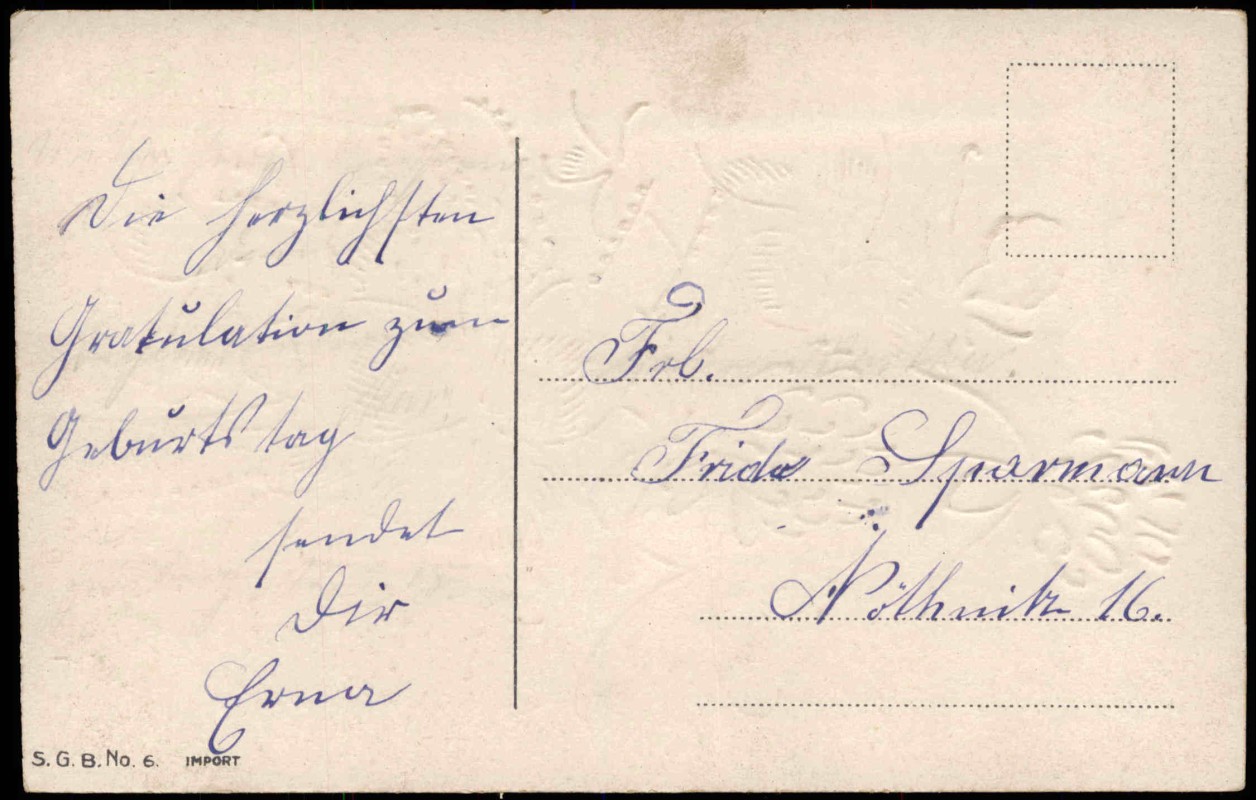 Die herzlichsten
Gratulation zum
Geburtstag
sendet
Dir
Erna
S.G.B. No. 6. IMPORT
Frl.
Frida Sparmann
Nöthnitz 16.